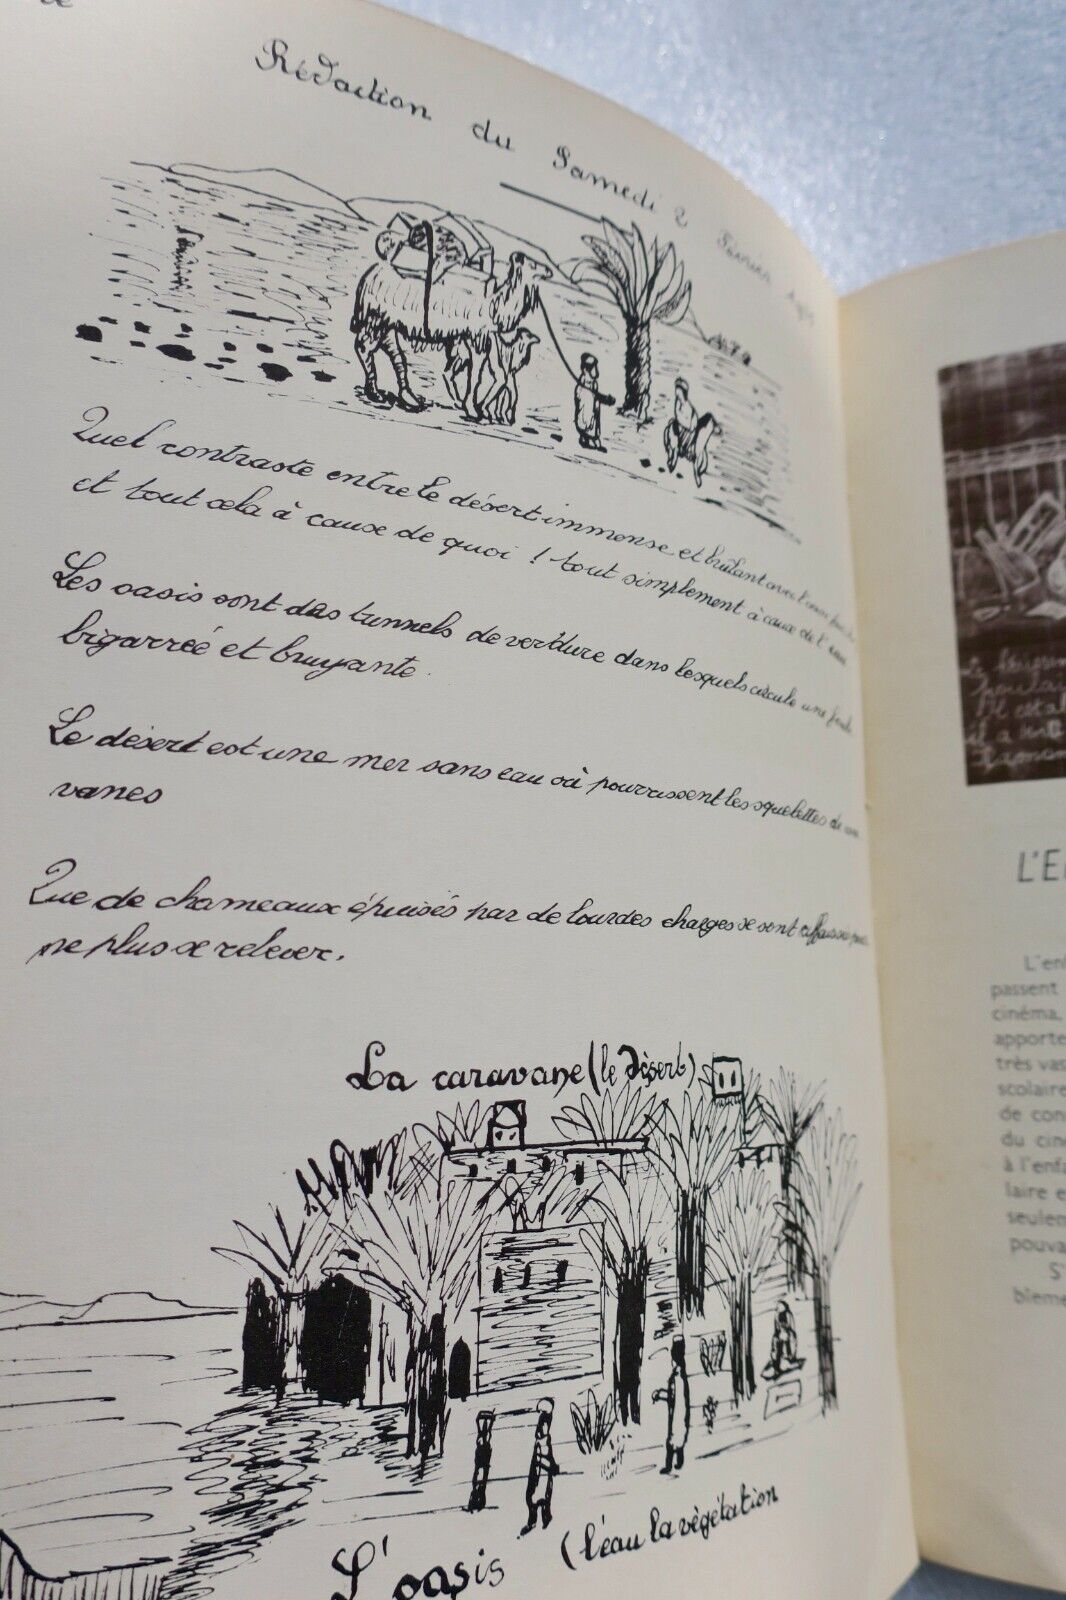 Rédaction du Samedi 2 Février
Quel contraste entre le désert immense et brûlant avec l'oasis
et tout cela à cause de quoi ! tout simplement à cause de l'eau
Les oasis sont des tunnels de verdure dans lesquels circule une foule
bigarrée et bruyante.
Le désert est une mer sans eau où pourrissent les squelettes de
vanes
Que de chameaux épuisés par de lourdes charges se sont affaissés
ne plus se relever.
La caravane (le désert)
L'oasis (l'eau la végétation
L'E
L'en
passent
cinéma,
apporte
très vas
scolaire
de con
du cin
à l'enfa
laire e
seulem
pouva
S'
bleme